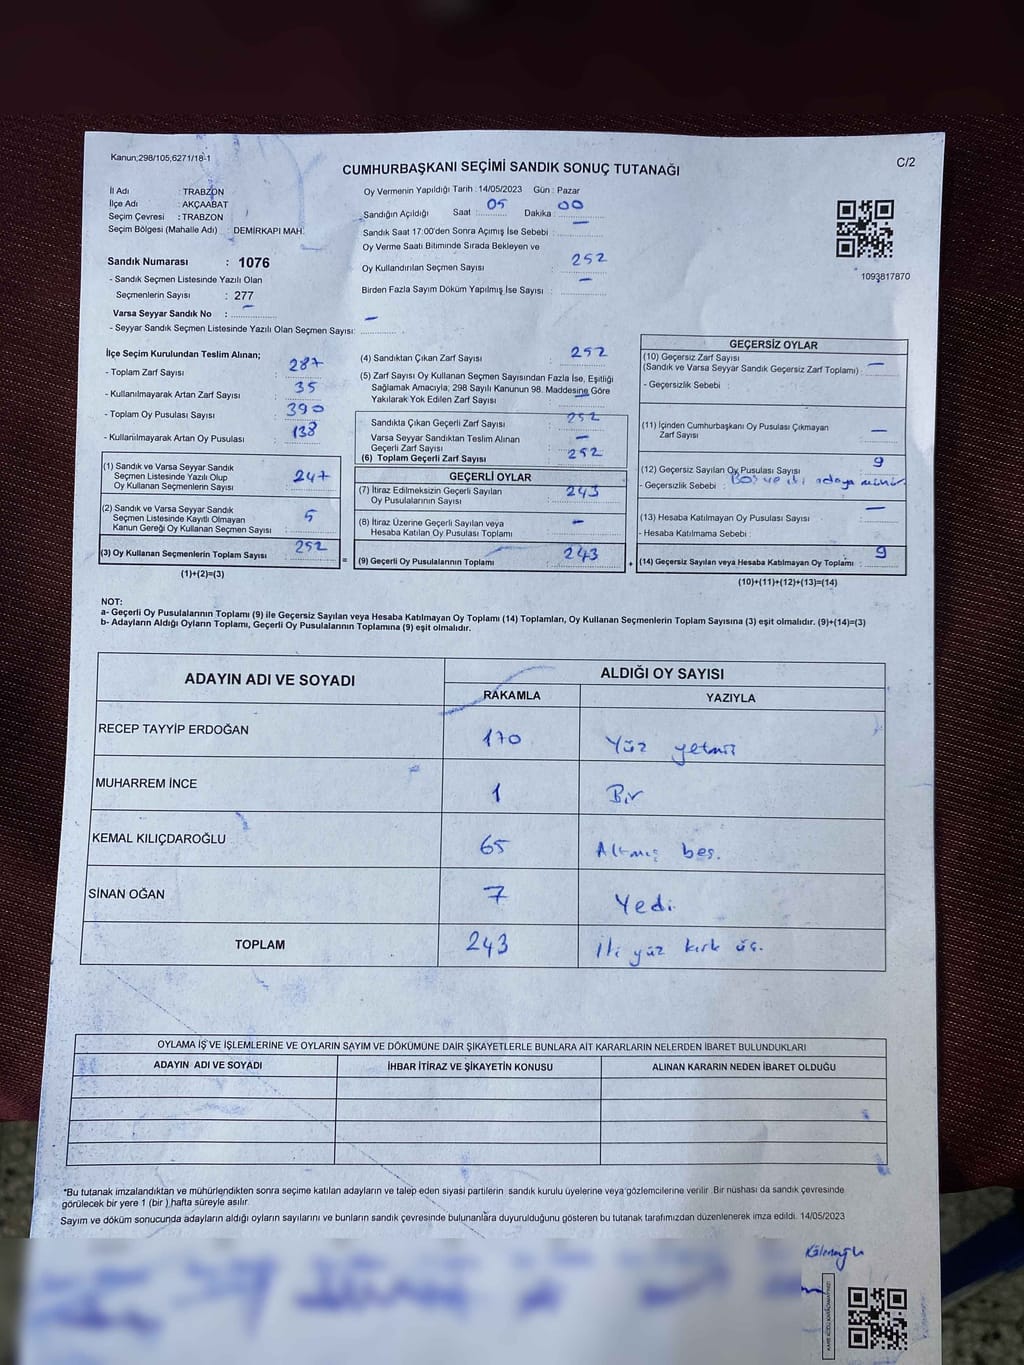 Kanun;298/105,6271/18-1
C/2
CUMHURBAŞKANI SEÇİMİ SANDIK SONUÇ TUTANAĞI
İl Adı : TRABZON
İlçe Adı : AKÇAABAT
Seçim Çevresi : TRABZON
Seçim Bölgesi (Mahalle Adı) : DEMİRKAPI MAH.
Oy Vermenin Yapıldığı Tarih : 14/05/2023 Gün : Pazar
Sandığın Açıldığı Saat : 05 Dakika : 00
Sandık Saat 17:00'den Sonra Açımış İse Sebebi : –
Oy Verme Saati Bitiminde Sırada Bekleyen ve
Oy Kullandırılan Seçmen Sayısı : 252
Birden Fazla Sayım Döküm Yapılmış İse Sayısı : –
1093817870
Sandık Numarası : 1076
- Sandık Seçmen Listesinde Yazılı Olan
Seçmenlerin Sayısı : 277
Varsa Seyyar Sandık No : –
- Seyyar Sandık Seçmen Listesinde Yazılı Olan Seçmen Sayısı: –
İlçe Seçim Kurulundan Teslim Alınan;
- Toplam Zarf Sayısı : 287
- Kullanılmayarak Artan Zarf Sayısı : 35
- Toplam Oy Pusulası Sayısı : 390
- Kullanılmayarak Artan Oy Pusulası : 138
(1) Sandık ve Varsa Seyyar Sandık
Seçmen Listesinde Yazılı Olup
Oy Kullanan Seçmenlerin Sayısı : 247
(2) Sandık ve Varsa Seyyar Sandık
Seçmen Listesinde Kayıtlı Olmayan
Kanun Gereği Oy Kullanan Seçmen Sayısı : 5
(3) Oy Kullanan Seçmenlerin Toplam Sayısı : 252
(1)+(2)=(3)
(4) Sandıktan Çıkan Zarf Sayısı : 252
(5) Zarf Sayısı Oy Kullanan Seçmen Sayısından Fazla İse, Eşitliği
Sağlamak Amacıyla, 298 Sayılı Kanunun 98. Maddesine Göre
Yakılarak Yok Edilen Zarf Sayısı : –
Sandıkta Çıkan Geçerli Zarf Sayısı : 252
Varsa Seyyar Sandıktan Teslim Alınan
Geçerli Zarf Sayısı : –
(6) Toplam Geçerli Zarf Sayısı : 252
GEÇERLİ OYLAR
(7) İtiraz Edilmeksizin Geçerli Sayılan
Oy Pusulalarının Sayısı : 243
(8) İtiraz Üzerine Geçerli Sayılan veya
Hesaba Katılan Oy Pusulası Toplamı : –
= (9) Geçerli Oy Pusulalarının Toplamı : 243
GEÇERSİZ OYLAR
(10) Geçersiz Zarf Sayısı
(Sandık ve Varsa Seyyar Sandık Geçersiz Zarf Toplamı) : –
- Geçersizlik Sebebi :
(11) İçinden Cumhurbaşkanı Oy Pusulası Çıkmayan
Zarf Sayısı : –
(12) Geçersiz Sayılan Oy Pusulası Sayısı : 9
- Geçersizlik Sebebi : Boş ve iki adaya
(13) Hesaba Katılmayan Oy Pusulası Sayısı : –
- Hesaba Katılmama Sebebi :
+ (14) Geçersiz Sayılan veya Hesaba Katılmayan Oy Toplamı : 9
(10)+(11)+(12)+(13)=(14)
NOT:
a- Geçerli Oy Pusulalarının Toplamı (9) ile Geçersiz Sayılan veya Hesaba Katılmayan Oy Toplamı (14) Toplamları, Oy Kullanan Seçmenlerin Toplam Sayısına (3) eşit olmalıdır. (9)+(14)=(3)
b- Adayların Aldığı Oyların Toplamı, Geçerli Oy Pusulalarının Toplamına (9) eşit olmalıdır.
ADAYIN ADI VE SOYADI ALDIĞI OY SAYISI
RAKAMLA YAZIYLA
RECEP TAYYİP ERDOĞAN 170 Yüz yetmiş
MUHARREM İNCE 1 Bir
KEMAL KILIÇDAROĞLU 65 Altmış beş.
SİNAN OĞAN 7 Yedi
TOPLAM 243 İki yüz kırk üç.
OYLAMA İŞ VE İŞLEMLERİNE VE OYLARIN SAYIM VE DÖKÜMÜNE DAİR ŞİKAYETLERLE BUNLARA AİT KARARLARIN NELERDEN İBARET BULUNDUKLARI
ADAYIN ADI VE SOYADI İHBAR İTİRAZ VE ŞİKAYETİN KONUSU ALINAN KARARIN NEDEN İBARET OLDUĞU
*Bu tutanak imzalandıktan ve mühürlendikten sonra seçime katılan adayların ve talep eden siyasi partilerin sandık kurulu üyelerine veya gözlemcilerine verilir. Bir nüshası da sandık çevresinde
görülecek bir yere 1 (bir ) hafta süreyle asılır.
Sayım ve döküm sonucunda adayların aldığı oyların sayılarını ve bunların sandık çevresinde bulunanlara duyurulduğunu gösteren bu tutanak tarafımızdan düzenlenerek imza edildi. 14/05/2023